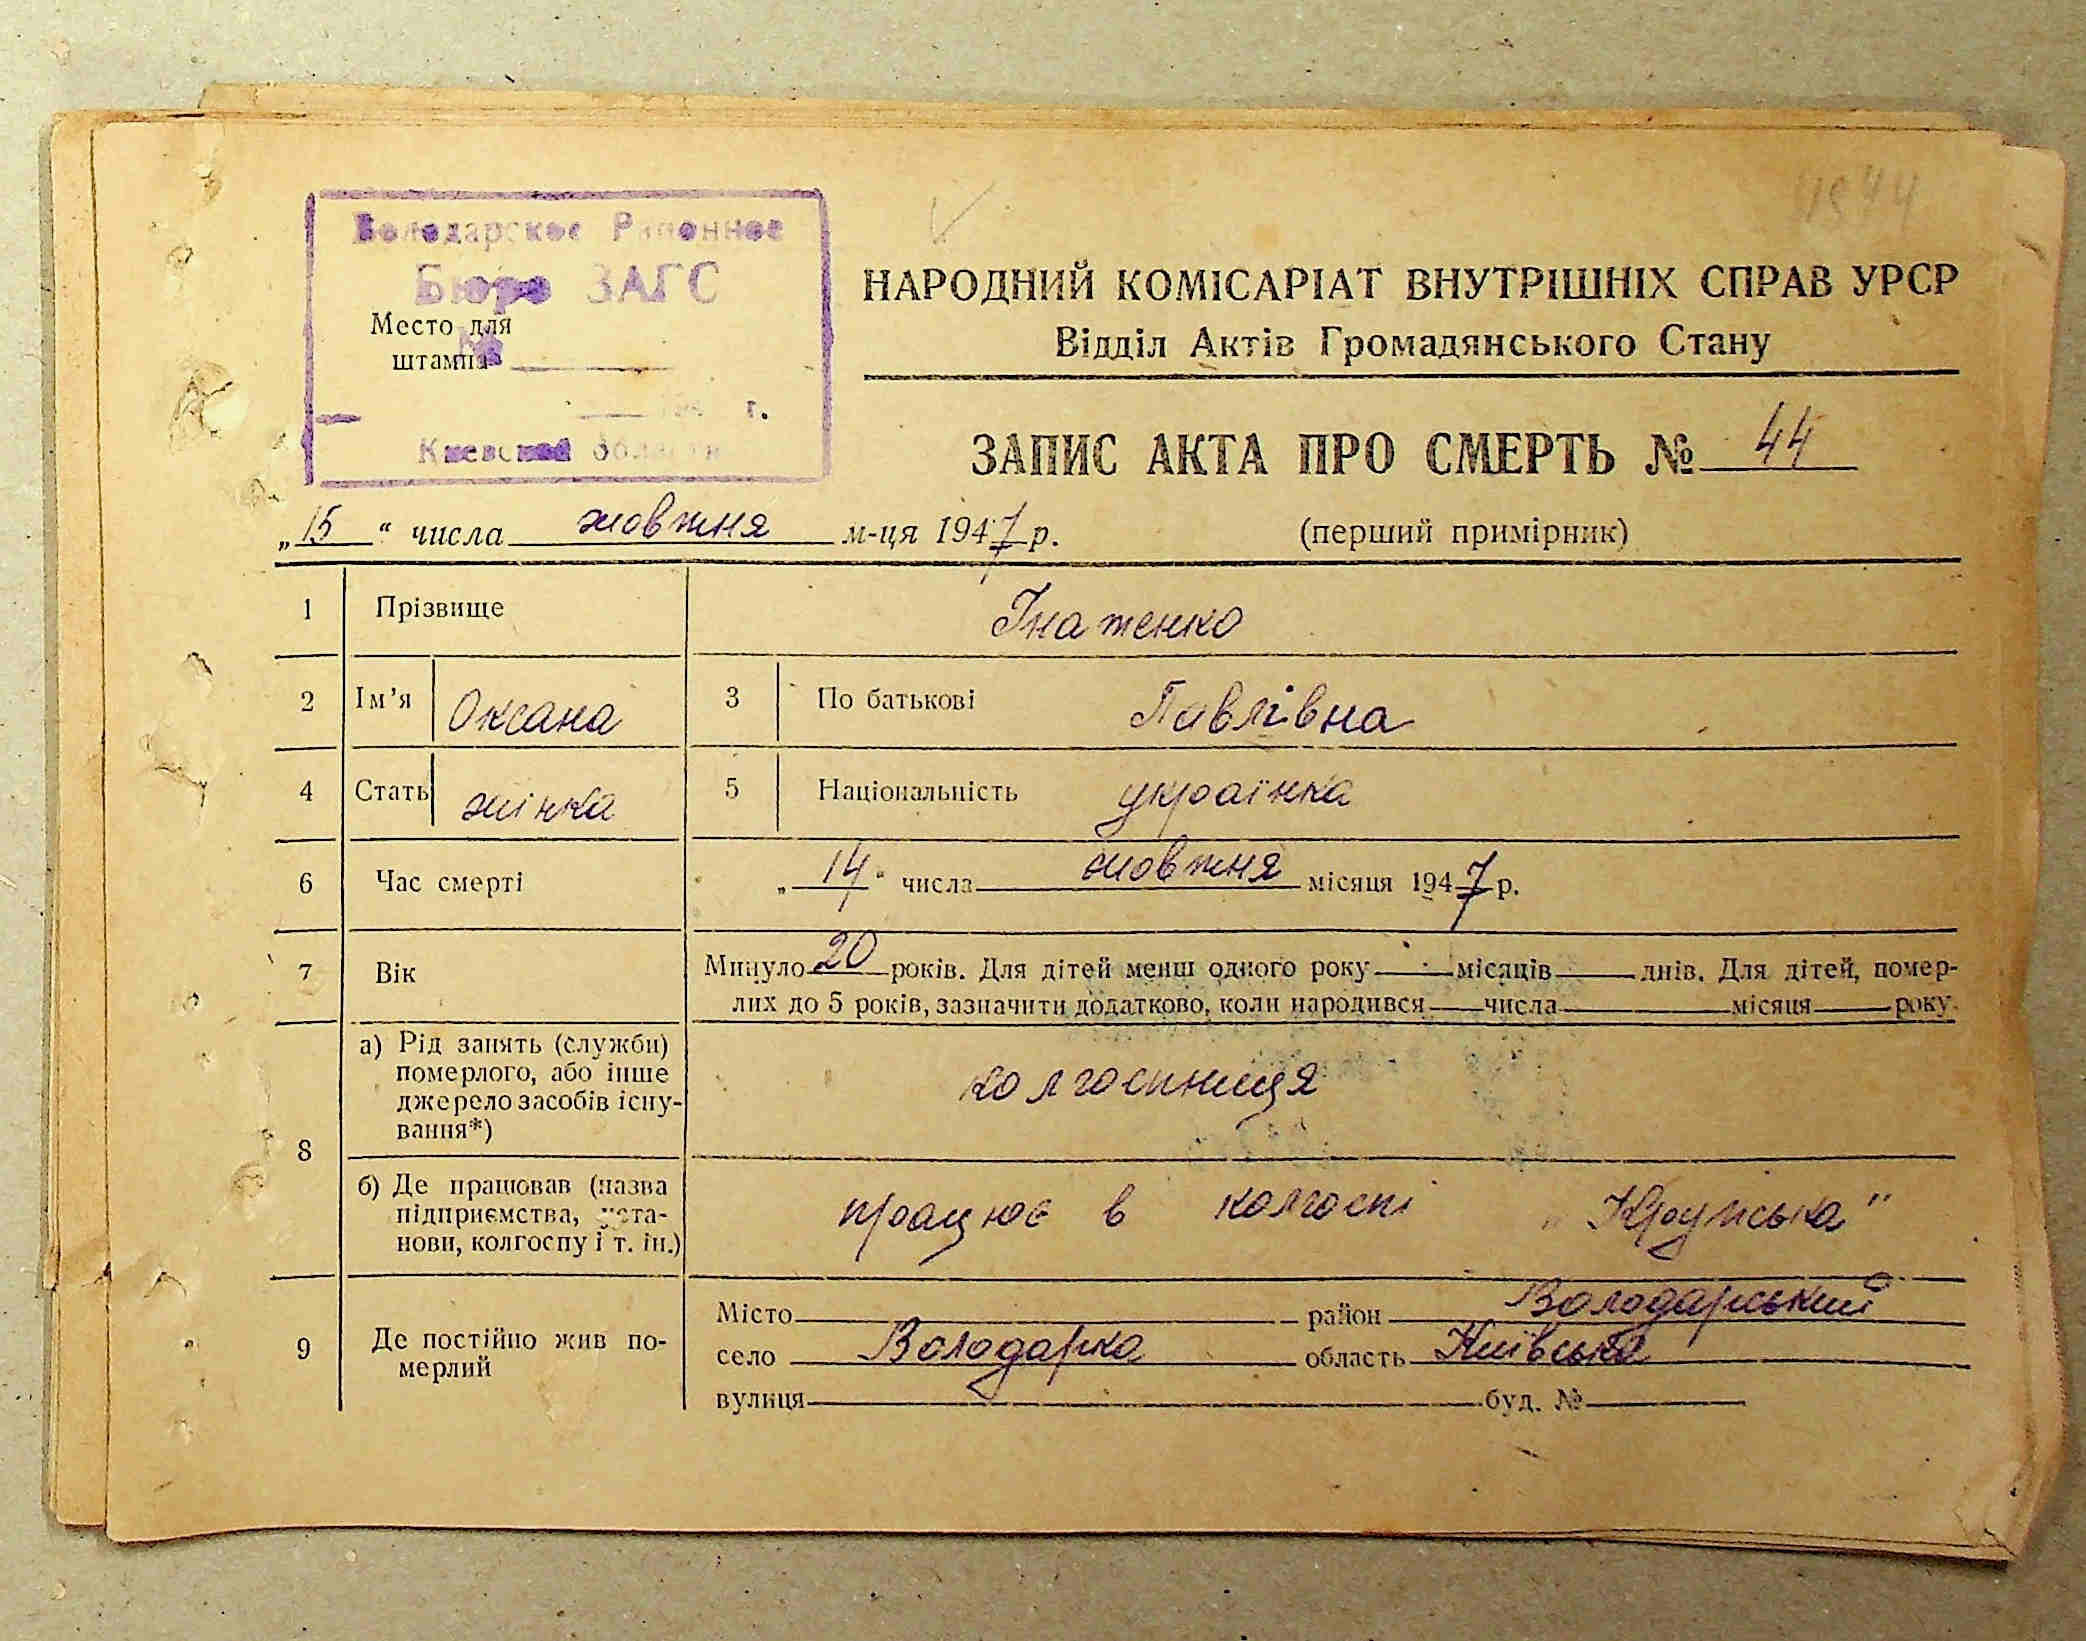 Володарское Районное
Бюро ЗАГС
Место для
штампа
№
г.
Киевской области
НАРОДНИЙ КОМІСАРІАТ ВНУТРІШНІХ СПРАВ УРСР
Відділ Актів Громадянського Стану
ЗАПИС АКТА ПРО СМЕРТЬ № 44
„15“ числа жовтня м-ця 1947 р. (перший примірник)
1 Прізвище Ігнатенко
2 Ім’я Оксана 3 По батькові Павлівна
4 Стать жінка 5 Національність українка
6 Час смерті „14“ числа жовтня місяця 1947 р.
7 Вік Минуло 20 років. Для дітей менш одного року місяців днів. Для дітей, помер-
лих до 5 років, зазначити додатково, коли народився числа місяця року.
8 а) Рід занять (служби)
померлого, або інше
джерело засобів існу-
вання*)
колгоспниця
б) Де працював (назва
підприємства, уста-
нови, колгоспу і т. ін.)
працює в колгоспі „Крупська"
9 Де постійно жив по-
мерлий
Місто район Володарський
село Володарка область Київська
вулиця буд. №